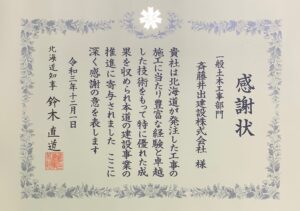 感謝状
一般土木工事部門
斉藤井出建設株式会社 様
貴社は北海道が発注した工事の
施工に当たり豊富な経験と卓越
した技術をもって特に優れた成
果を収められ本道の建設事業の
推進に寄与されました ここに
深く感謝の意を表します
令和三年十二月一日
北海道知事 鈴木直道